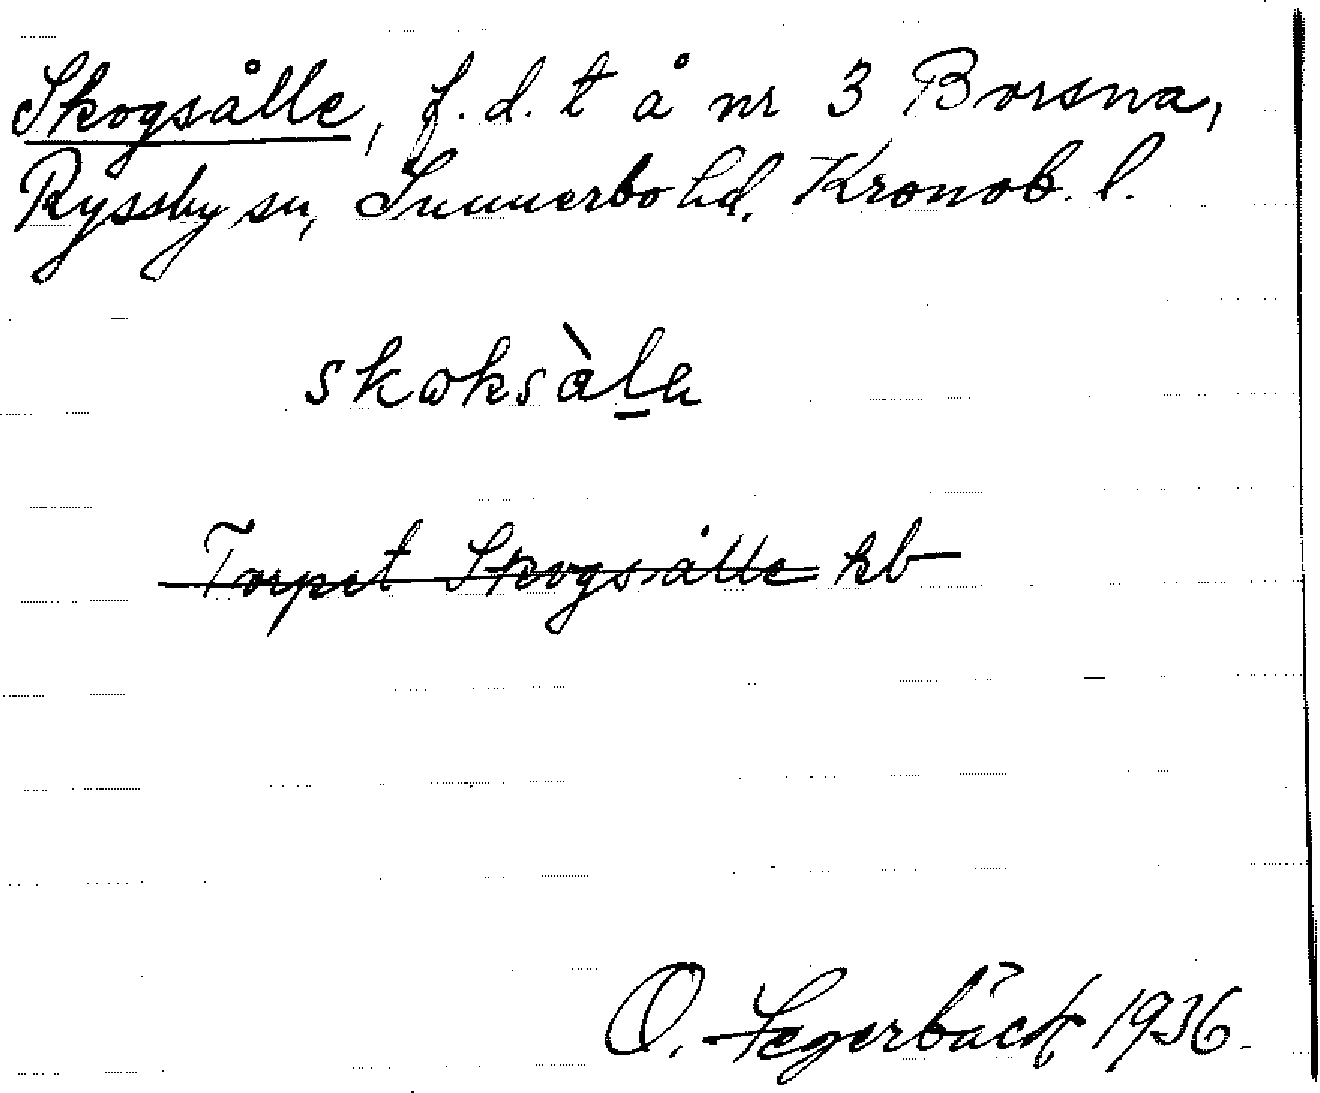 Skogsålle, f. d. t å nr 3 Borsna,
Ryssby sn, Sunnerbo hd, Kronob. l.
skoksàla
Torpet Skogsålle kb
O. Fegerbäck 1936.